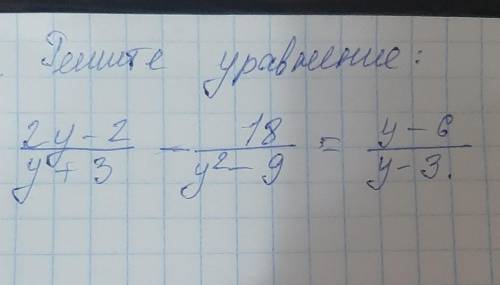 Решите уравнение:
2y - 2 / y + 3 - 18 / y² - 9 = y - 6 / y - 3.